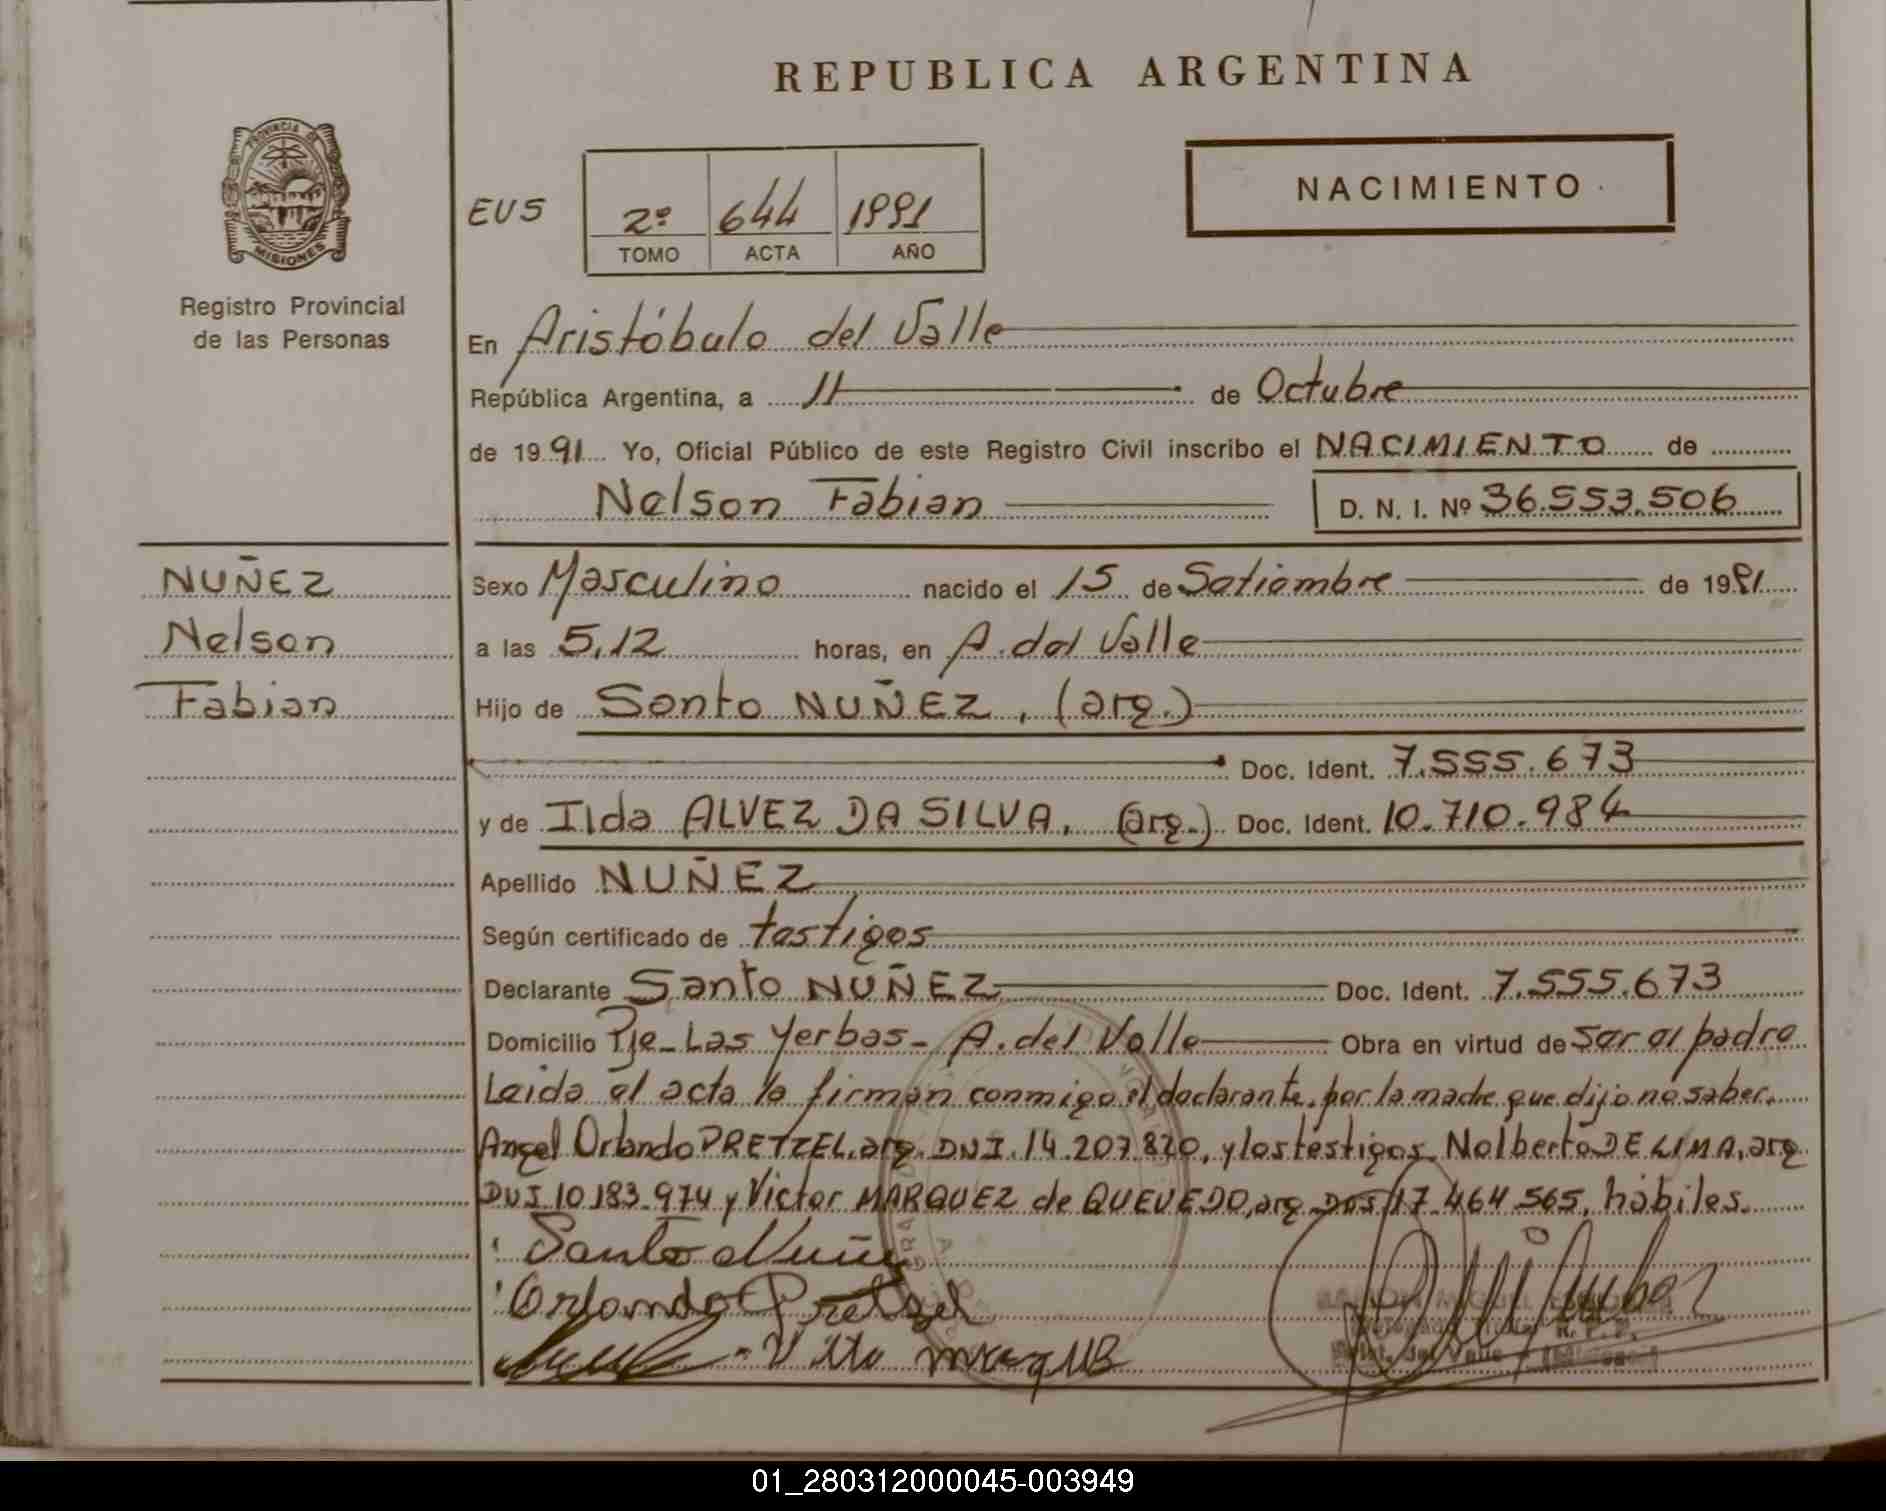 REPUBLICA ARGENTINA
PROVINCIA DE
MISIONES
Registro Provincial
de las Personas
EUS
2º 644 1991
TOMO ACTA AÑO
NACIMIENTO
En Aristóbulo del Valle
República Argentina, a 11 de Octubre
de 1991 Yo, Oficial Público de este Registro Civil inscribo el NACIMIENTO de
Nelson Fabian D. N. I. Nº 36.553.506
NUÑEZ
Nelson
Fabian
Sexo Masculino nacido el 15 de Setiembre de 1991
a las 5,12 horas, en A. del Valle
Hijo de Santo NUÑEZ, (arg.)
Doc. Ident. 7.555.673
y de Ilda ALVEZ DA SILVA, (arg.) Doc. Ident. 10.710.984
Apellido NUÑEZ
Según certificado de testigos
Declarante Santo NUÑEZ Doc. Ident. 7.555.673
Domicilio Pje_Las Yerbas_ A. del Valle Obra en virtud de ser el padre
Leida el acta la firman conmigo el declarante, por la madre que dijo no saber.
Angel Orlando PRETZEL, arg. DNI. 14.207.820, y los testigos Nolberto DE LIMA, arg.
DNI 10.183.974 y Victor MARQUEZ de QUEVEDO, arg. DNI 17.464.565, hábiles.
Santo Nuñe
Orlando Pretzel
01_280312000045-003949